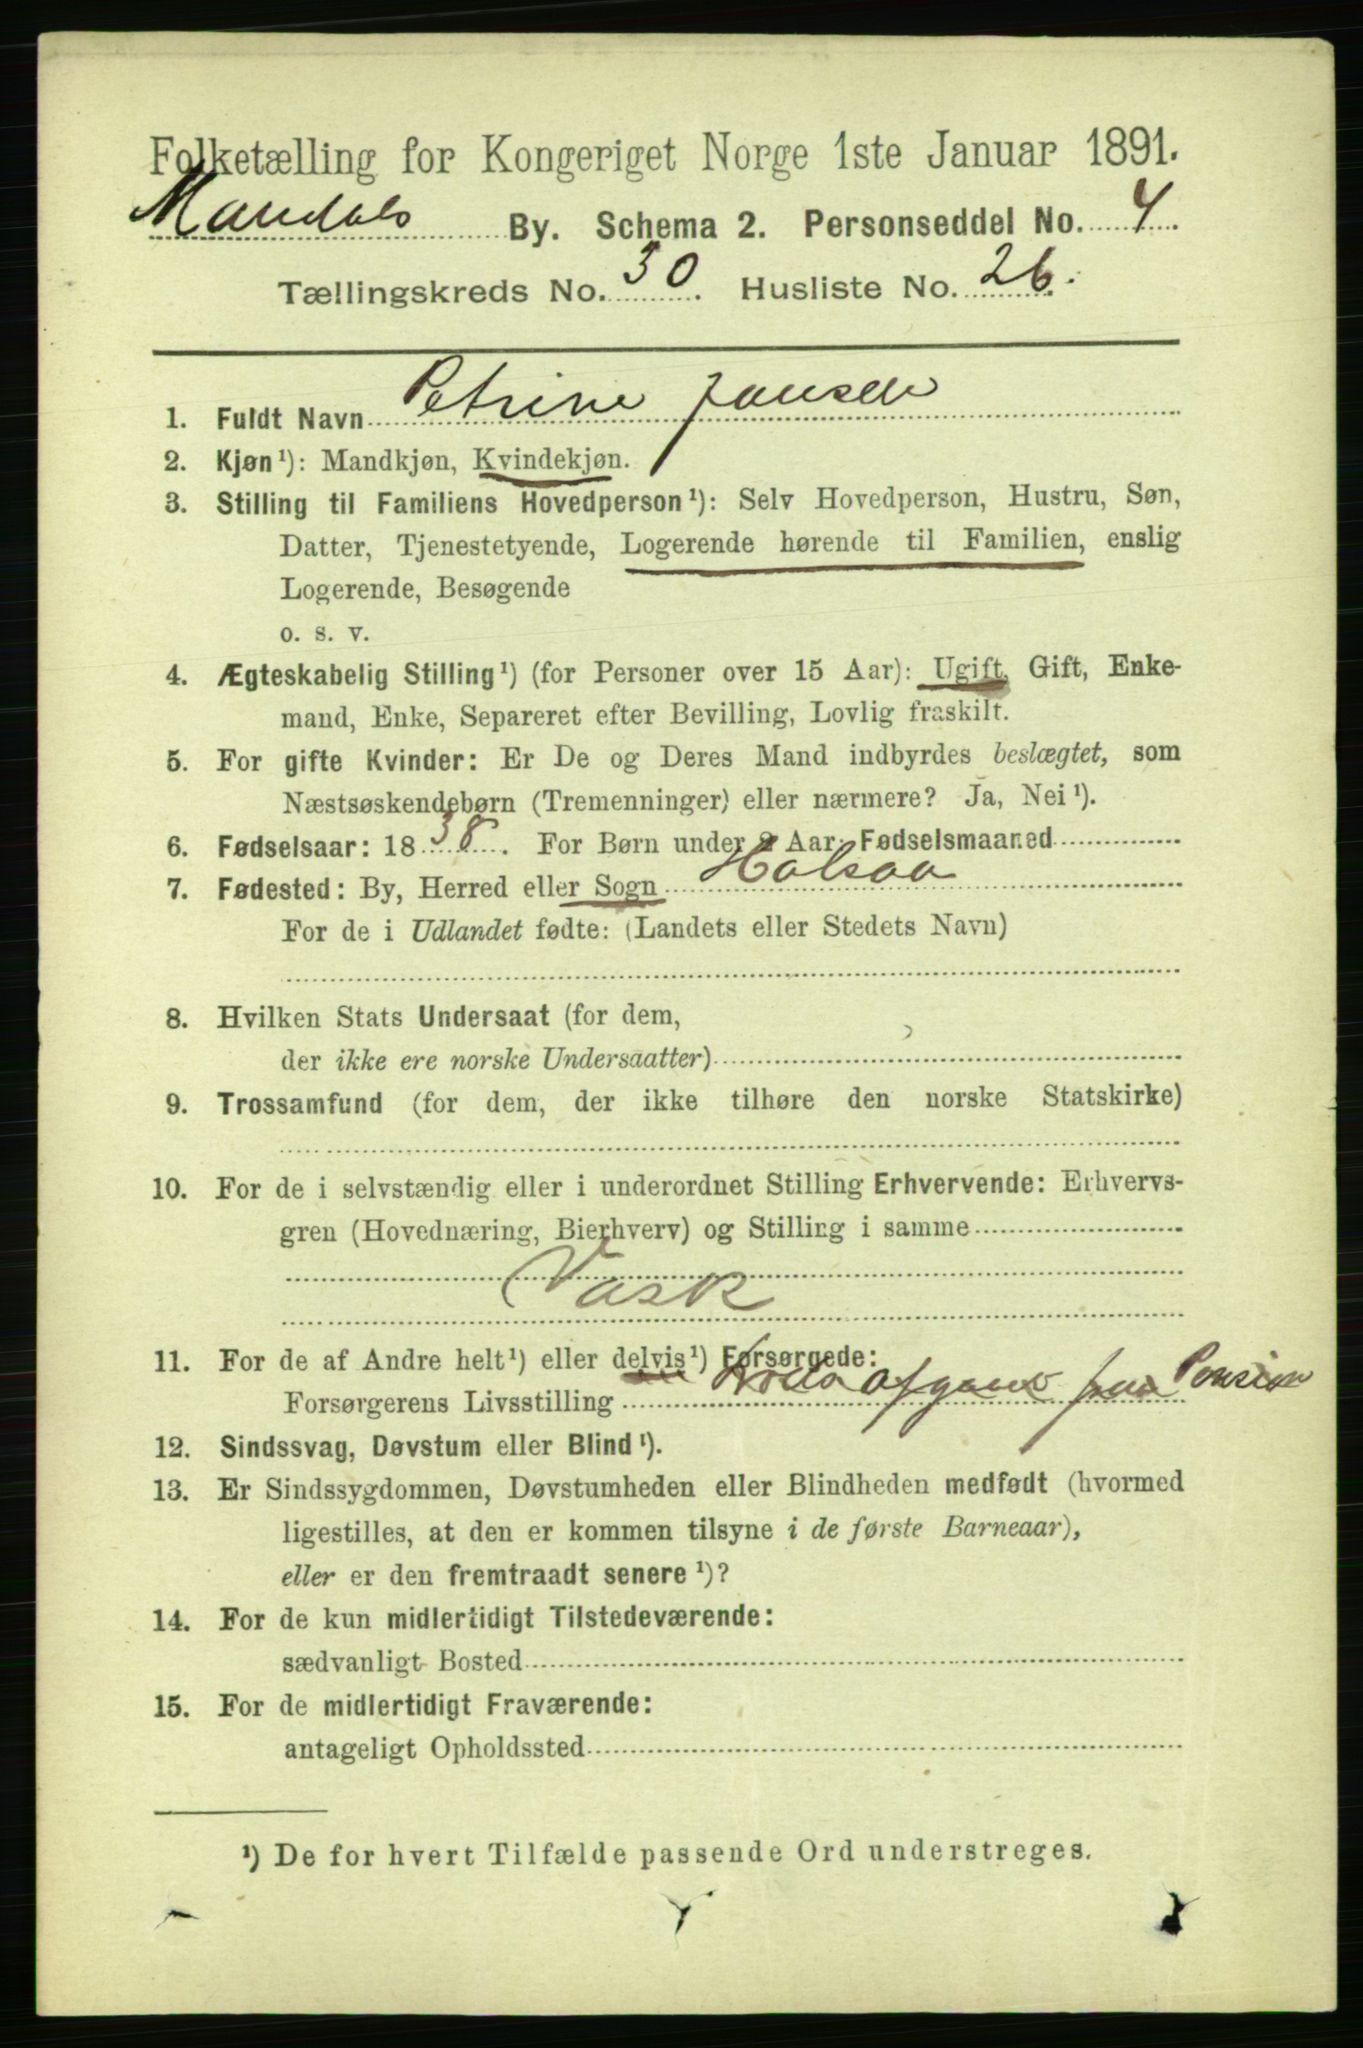 Folketælling for Kongeriget Norge 1ste Januar 1891.
Mandals By. Schema 2. Personseddel No. 4.
Tællingskreds No. 30. Husliste No. 26.
1. Fuldt Navn Petrine Jansen
2. Kjøn¹): Mandkjøn, Kvindekjøn.
3. Stilling til Familiens Hovedperson¹): Selv Hovedperson, Hustru, Søn,
Datter, Tjenestetyende, Logerende hørende til Familien, enslig
Logerende, Besøgende
o. s. v.
4. Ægteskabelig Stilling¹) (for Personer over 15 Aar): Ugift, Gift, Enke-
mand, Enke, Separeret efter Bevilling, Lovlig fraskilt.
5. For gifte Kvinder: Er De og Deres Mand indbyrdes beslægtet, som
Næstsøskendebørn (Tremenninger) eller nærmere? Ja, Nei¹).
6. Fødselsaar: 1838. For Børn under 2 Aar: Fødselsmaaned
7. Fødested: By, Herred eller Sogn Halsaa
For de i Udlandet fødte: (Landets eller Stedets Navn)
8. Hvilken Stats Undersaat (for dem,
der ikke ere norske Undersaatter)
9. Trossamfund (for dem, der ikke tilhøre den norske Statskirke)
10. For de i selvstændig eller i underordnet Stilling Erhvervende: Erhvervs-
gren (Hovednæring, Bierhverv) og Stilling i samme
Vask
11. For de af Andre helt¹) eller delvis¹) Forsørgede:
Forsørgerens Livsstilling paa Pension
12. Sindssvag, Døvstum eller Blind¹).
13. Er Sindssygdommen, Døvstumheden eller Blindheden medfødt (hvormed
ligestilles, at den er kommen tilsyne i de første Barneaar),
eller er den fremtraadt senere¹)?
14. For de kun midlertidigt Tilstedeværende:
sædvanligt Bosted
15. For de midlertidigt Fraværende:
antageligt Opholdssted
¹) De for hvert Tilfælde passende Ord understreges.